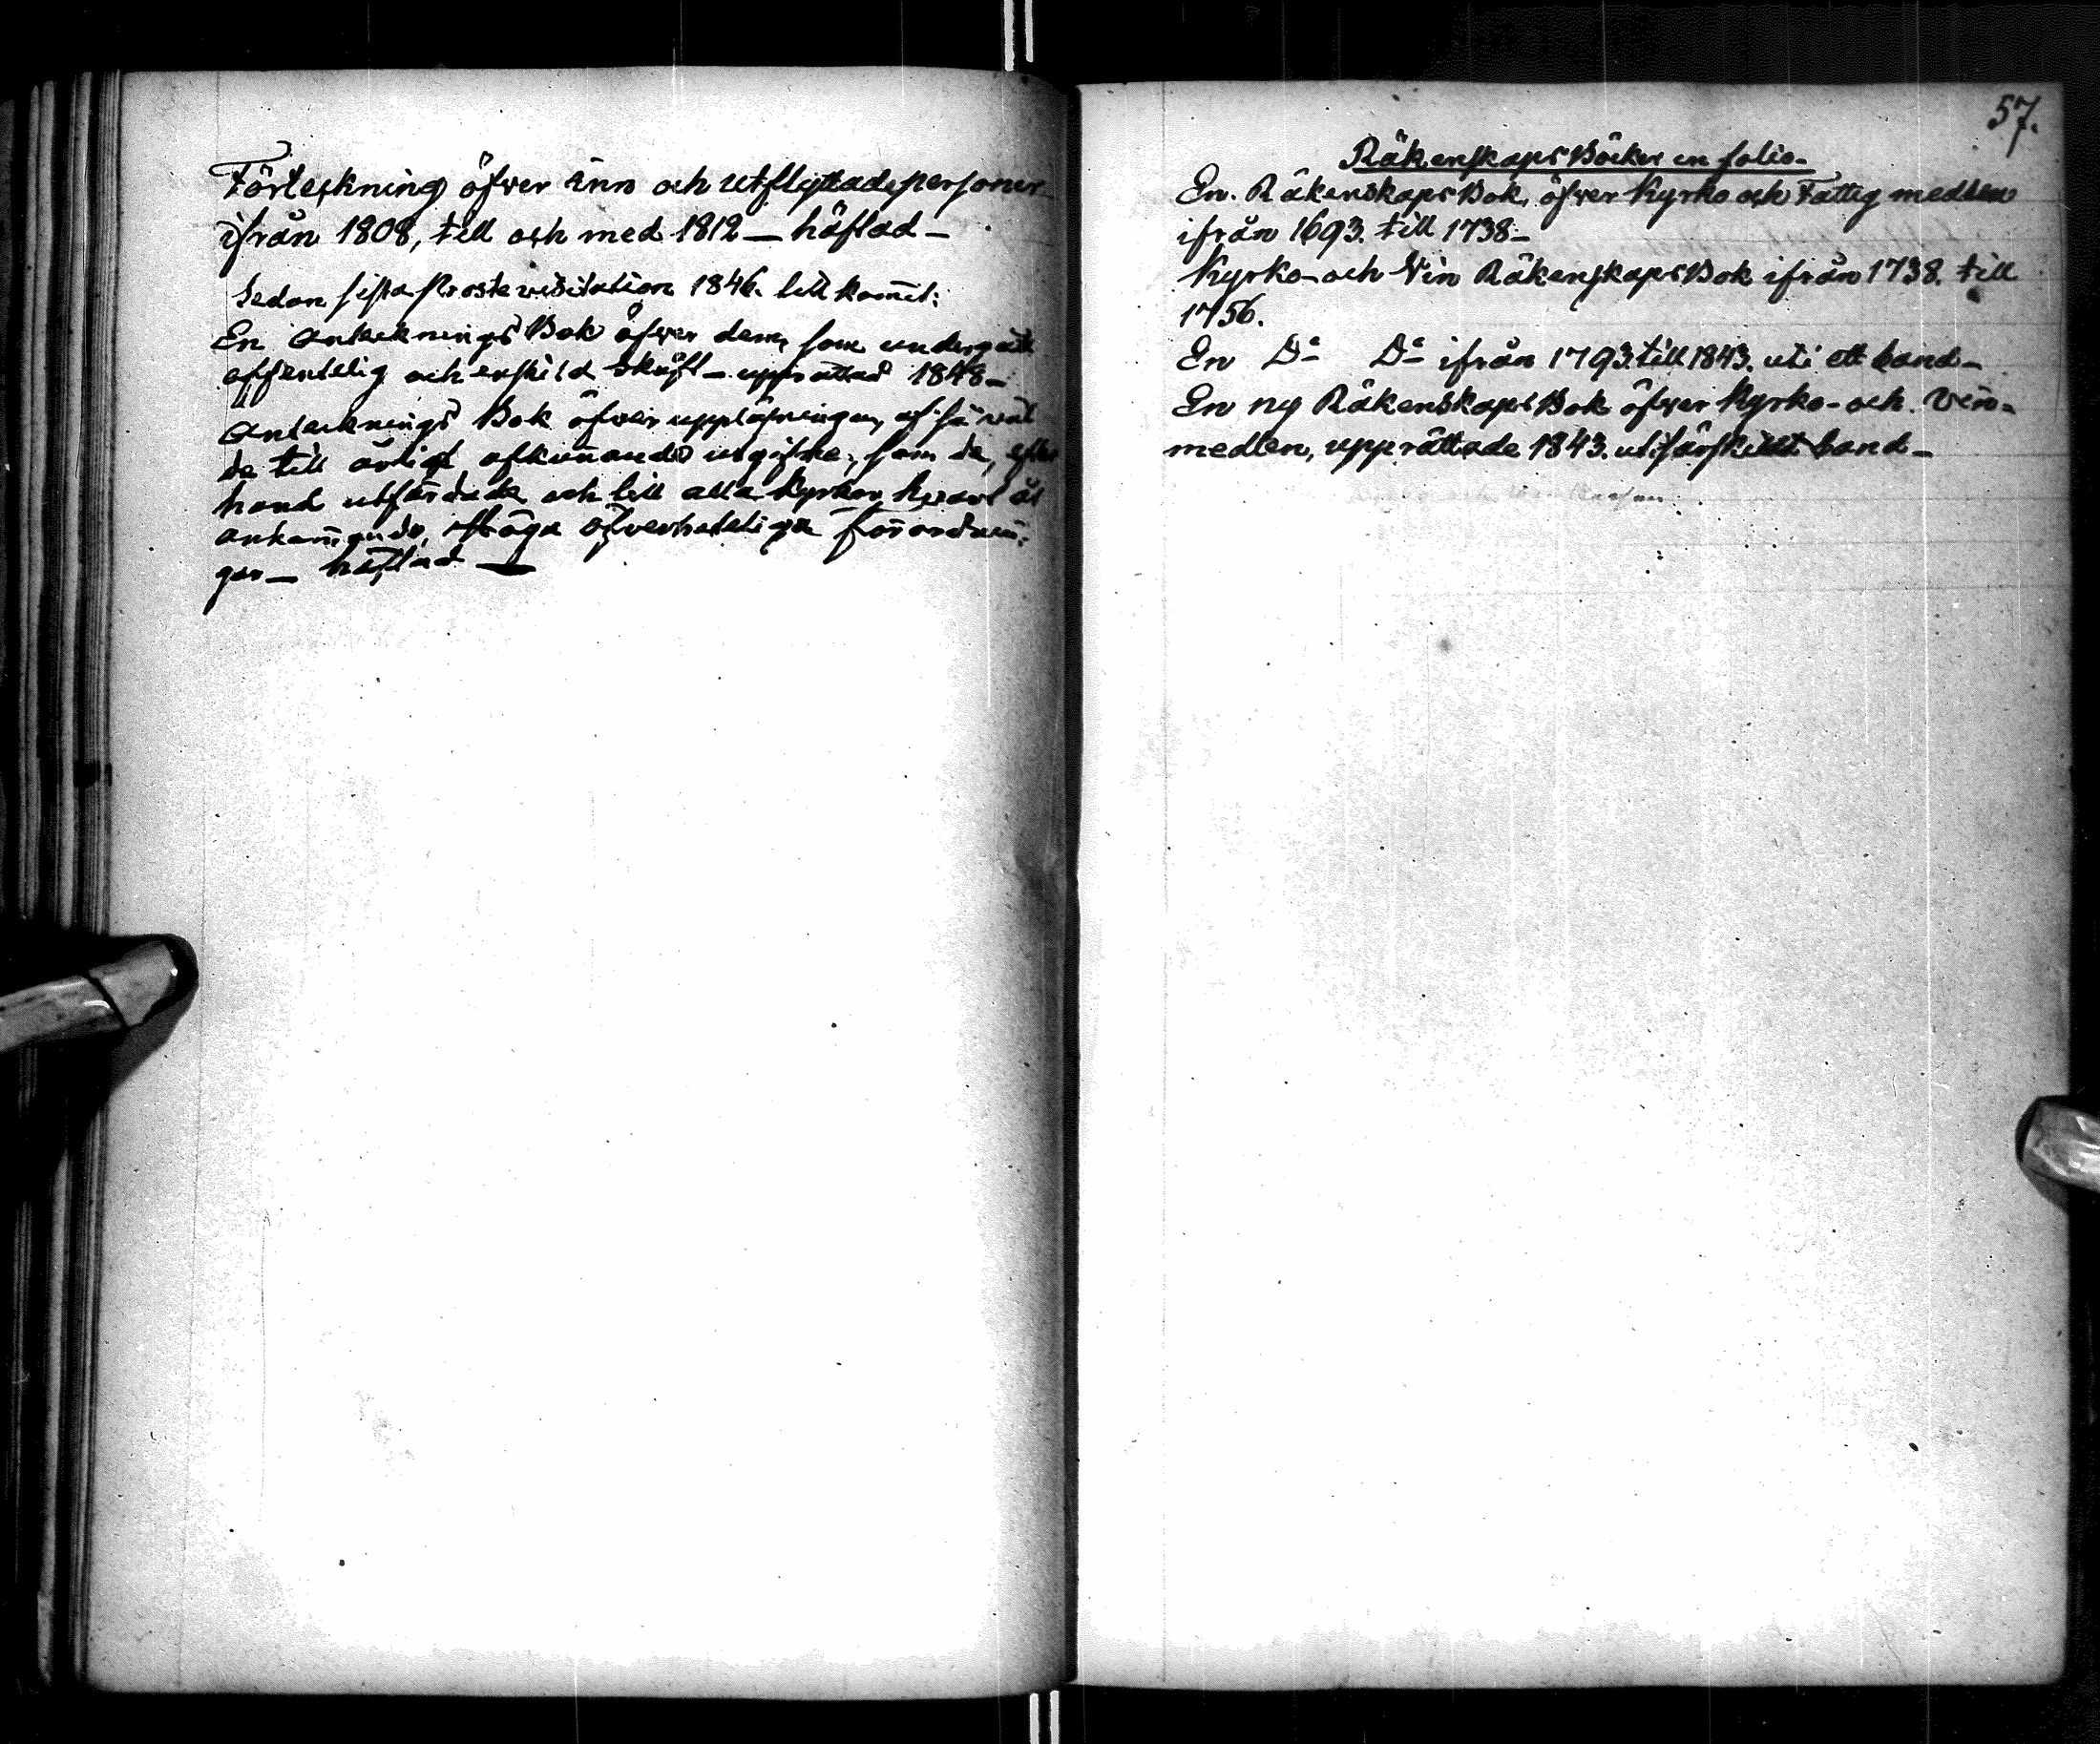 Förteckning öfver inn och utflyttade personer
ifrån 1808, till och med 1812 — häftad —
Sedan sista Prostevisitation 1846. till kom̅it:
En Antecknings Bok öfver dem, som undergått
offentelig och enskild Skrift — upprättad 1848 —
Antecknings Bok öfver uppläsningen af så väl
de till årligt afkun̅ande utgifne, som de, efter
hand utfärdade och till alla Kyrkor
ankom̅ande, Höga öfverheteliga förordnin¬
gar — häftad —
57.
Räkenskaps Böcker in folio —
En Räkenskaps Bok, öfver Kyrko och Fattig medlen
ifrån 1693. till 1738 —
Kyrko- och Vin Räkenskaps Bok ifrån 1738. till
1756.
En Do Do ifrån 1793 till 1843. uti ett band —
En ny Räkenskaps Bok öfver Kyrko- och Vin-
medlen, upprättade 1843. uti särskildt band —